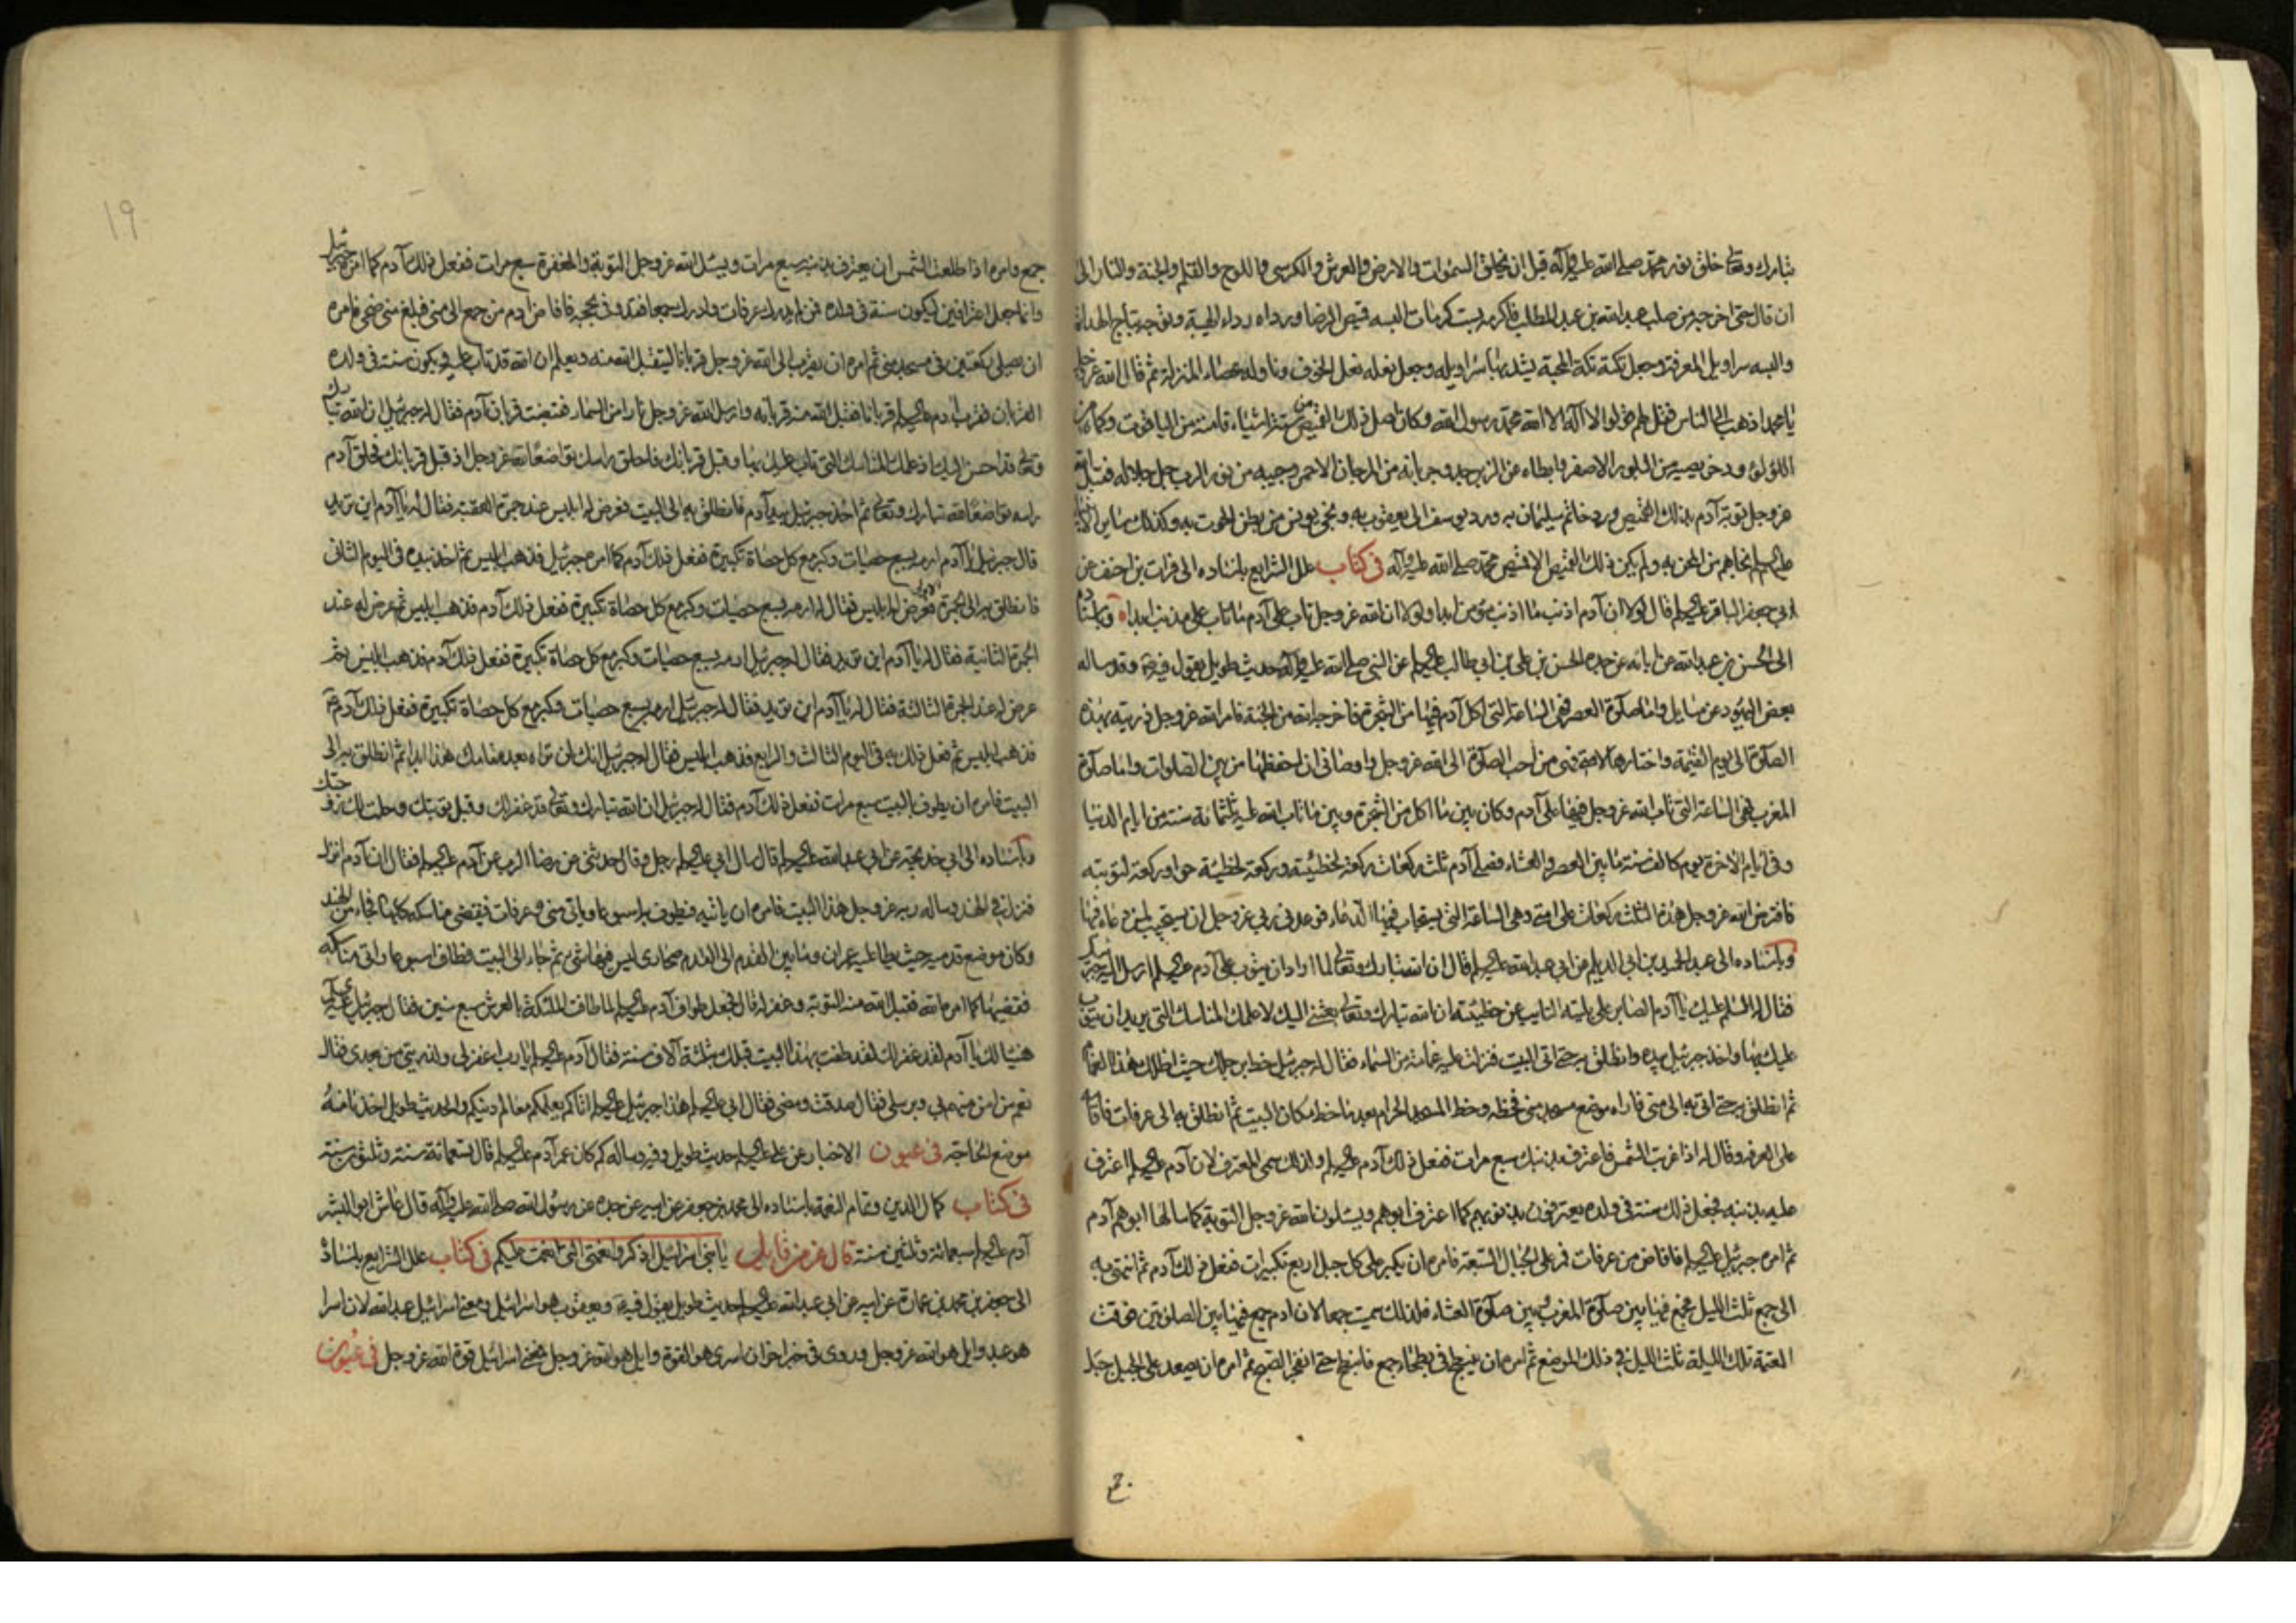 تبارك وتعالى خلق نور محمد صلى الله عليه وآله قبل ان يخلق السموات والارض والعرش والكرسي واللوح والقلم والجنة والنار الى
ان قال حتى اخرجه من صلب عبدالله بن عبدالمطلب فاكرمه بست كرمات البسه قميص الرضا ورداه برداء الهيبة وتوجه بتاج الهداية
والبسه سراويل المعرفة وجعل تكته تكة المحبة يشد بها سراويله وجعل نعله نعل الخوف وناوله عصاء المنزلة ثم قال الله عز وجل
يا محمد اذهب الى الناس فقل لهم قولوا لا اله الا الله محمد رسول الله وكان اصل ذلك القميص من ستة اشياء قامته من الياقوت وكماه من
اللؤلؤ ودخريصه من البلور الاصفر وابطاه من الزبرجد وجربانه من المرجان الاحمر وجيبه من نور الرب جل جلاله فقبل الله
عز وجل توبة آدم بذلك القميص ورد خاتم سليمان به ورد يوسف الى يعقوب به ونجى يونس من بطن الحوت به وكذلك ساير الانبيا
عليهم السلم نجاهم من المحن به ولم يكن ذلك القميص الا قميص محمد صلى الله عليه وآله في كتاب علل الشرايع باسناده الى فرات بن احنف عن
ابي جعفر الباقر عليه السلم قال لولا ان آدم اذنب ما اذنب مؤمن ابدا ولولا ان الله عز وجل تاب على آدم ما تاب على مذنب ابدا وباسناده
الى الحسن بن عبدالله عن آبائه عن جده الحسن بن علي بن ابي طالب عليه السلم عن النبي صلى الله عليه وآله حديث طويل يقول فيه وقد ساله
بعض اليهود عن مسايل واما صلوة العصر فهي الساعة التي اكل آدم فيها من الشجرة فاخرجه الله من الجنة فامر الله عز وجل ذريته بهذه
الصلوة الى يوم القيمة واختارها لامتي فهي من احب الصلوة الى الله عز وجل واوصاني ان احفظها من بين الصلوات واما صلوة
المغرب فهي الساعة التي تاب الله عز وجل فيها على آدم وكان بين ما اكل من الشجرة وبين ما تاب الله عليه ثلثمائة سنة من ايام الدنيا
وفي ايام الاخرة يوم كالف سنة ما بين العصر والعشاء فصلى آدم ثلث ركعات ركعة لخطيئته وركعة لخطيئة حوا وركعة لتوبته
فافترض الله عز وجل هذه الثلث ركعات على امتي وهي الساعة التي يستجاب فيها الدعاء فوعدني ربي عز وجل ان يستجيب لمن دعاه فيها
وباسناده الى عبدالحميد بن ابي الديلم عن ابي عبدالله عليه السلم قال ان الله تبارك وتعالى لما اراد ان يتوب على آدم عليه السلم ارسل اليه جبرئيل
فقال له السلم عليك يا آدم الصابر على بليته التايب عن خطيئته ان الله تبارك وتعالى بعثني اليك لاعلمك المناسك التي يريد ان يتوب
عليك بها واخذ جبرئيل بيده وانطلق به حتى اتى البيت فنزل عليه غمامة من السماء فقال له جبرئيل خط برجلك حيث اظلك هذا الغمام
ثم انطلق به حتى اتى به الى منى فاراه موضع مسجد منى فخطه وخط المسجد الحرام بعد ما خط مكان البيت ثم انطلق به الى عرفات فاقامه
على العرف وقال له اذا غربت الشمس فاعترف بذنبك سبع مرات ففعل ذلك آدم عليه السلم ولذلك سمي المعترف لان آدم عليه السلم اعترف
عليه بذنبه فجعل ذلك سنة في ولده يعترفون بذنوبهم كما اعترف ابوهم ويسئلون الله عز وجل التوبة كما سالها ابوهم آدم
ثم امره جبرئيل عليه السلم فافاض من عرفات فمر على الجبال السبعة فامره ان يكبر على كل جبل اربع تكبيرات ففعل ذلك آدم ثم انتهى به
الى جمع ثلث الليل فجمع فيها بين صلوة المغرب وبين صلوة العشاء فلذلك سميت جمعا لان آدم جمع فيها بين الصلوتين فوقت
العتمة تلك الليلة ثلث الليل في ذلك الموضع ثم امره ان ينبطح في بطحاء جمع فانبطح حتى انفجر الصبح ثم امره ان يصعد على الجبل جبل
جمع وامره اذا طلعت الشمس ان يعترف بذنبه سبع مرات ويسئل الله عز وجل التوبة والمغفرة سبع مرات ففعل ذلك آدم كما امره جبرئيل
وانما جعل اعترافين ليكون سنة في ولده فمن لم يدرك عرفات وادرك جمعا فقد وفى بحجه فافاض آدم من جمع الى منى فبلغ منى ضحى فامره
ان يصلي ركعتين في مسجد منى ثم امره ان يقرب الى الله عز وجل قربانا ليتقبل الله منه ويعلم ان الله قد تاب عليه ويكون سنة في ولده
القربان فقرب آدم عليه السلم قربانا فقبل الله منه قربانه وارسل الله عز وجل نارا من السماء فقبضت قربان آدم فقال له جبرئيل ان الله تبارك
وتعالى قد احسن اليك اذ علمك المناسك التي تاب عليك بها وقبل قربانك فاحلق راسك تواضعا لله عز وجل اذ قبل قربانك فحلق آدم
راسه تواضعا لله تبارك وتعالى ثم اخذ جبرئيل بيد آدم فانطلق به الى البيت فعرض له ابليس عند جمرة العقبة فقال له يا آدم اين تريد
قال جبرئيل يا آدم ارمه بسبع حصيات وكبر مع كل حصاة تكبيرة ففعل ذلك آدم كما امره جبرئيل فذهب ابليس ثم اخذ بيده في اليوم الثاني
فانطلق به الى الجمرة الاولى فعرض له ابليس فقال له ارمه بسبع حصيات وكبر مع كل حصاة تكبيرة ففعل ذلك آدم فذهب ابليس ثم عرض له عند
الجمرة الثانية فقال له يا آدم اين تريد فقال له جبرئيل ارمه بسبع حصيات وكبر مع كل حصاة تكبيرة ففعل ذلك آدم فذهب ابليس ثم
عرض له عند الجمرة الثالثة فقال له يا آدم اين تريد فقال له جبرئيل ارمه بسبع حصيات وكبر مع كل حصاة تكبيرة ففعل ذلك آدم
فذهب ابليس ثم فعل ذلك به في اليوم الثالث والرابع فذهب ابليس فقال له جبرئيل انك لن تراه بعد مقامك هذا ابدا ثم انطلق به الى
البيت فامره ان يطوف بالبيت سبع مرات ففعل ذلك آدم فقال له جبرئيل ان الله تبارك وتعالى قد غفر لك وقبل توبتك وحلت لك زوجتك
وباسناده الى ابي خديجة عن ابي عبدالله عليه السلم قال سال ابي عليه السلم رجل وقال حدثني عن رضا الرب عن آدم عليه السلم فقال ان آدم انزل
فنزل في الهند وساله ربه عز وجل هذا البيت فامره ان ياتيه فيطوف به اسبوعا وياتي منى وعرفات فيقضي مناسكه كلها فجاء من الهند
وكان موضع قدميه حيث يطا عليه عمران وما بين القدم الى القدم صحاري ليس فيها شي ثم جاء الى البيت فطاف اسبوعا واتى مناسكه
فقضيها كما امره الله فقبل الله منه التوبة وغفر له قال فجعل طواف آدم عليه السلم لما طافت الملئكة بالعرش سبع سنين فقال جبرئيل عليه السلم
هنيئا لك يا آدم لقد غفر لك لقد طفت بهذا البيت قبلك بثلثة آلاف سنة فقال آدم عليه السلم يا رب اغفر لي ولذريتي من بعدي فقال
نعم من امن منهم بي وبرسلي فقال صدقت ومضى فقال ابي عليه السلم هذا جبرئيل عليه السلم اتاكم يعلمكم معالم دينكم والحديث طويل اخذنا منه
موضع الحاجة في عيون الاخبار عن علي عليه السلم حديث طويل وفيه وساله كم كان عمر آدم عليه السلم قال تسعمائة سنة وثلثون سنة
في كتاب كمال الدين وتمام النعمة باسناده الى محمد بن جعفر عن ابيه عن جده عن رسول الله صلى الله عليه وآله قال عاش ابو البشر
آدم عليه السلم سبعمائة وثلثين سنة قال عز من قائل يا بني اسرائيل اذكروا نعمتي التي انعمت عليكم في كتاب علل الشرايع باسناده
الى جعفر بن محمد بن عمارة عن ابيه عن ابي عبدالله عليه السلم حديث طويل يقول فيه ويعقوب هو اسرائيل ومعنى اسرائيل عبدالله لان اسرا
هو عبد وايل هو الله عز وجل وروى في خبر اخر ان اسرى هو القوة وايل هو الله عز وجل فمعنى اسرائيل قوة الله عز وجل في عيون
19